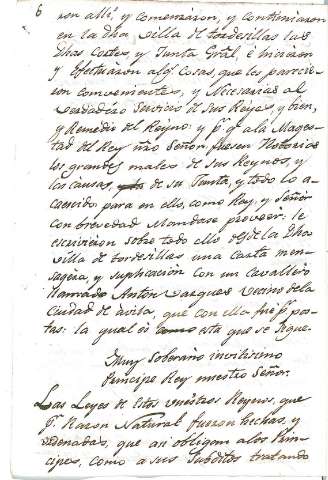 6
ron alli, y comenzaron, y continuaron
en la dha villa de tordesillas las
dhas Cortes y Junta Gral, é hicieron
y efectuaron algs. Cosas, que les parecie-
ron combenientes, y Necesarias al
verdadero Servicio de Sus Reyes, y bien,
y Remedio del Reyno: y pa. q. a la Mages-
tad del Rey nro Señor, fuesen Notorios
los grandes males de Sus Reynos, y
las causas, de su Junta, y todo lo a-
caecido para en ello, como Rey, y Señor
con brevedad Mandase proveer: le
escrivieron sobre todo ello desde la Dha
villa de tordesillas una Carta men-
sagera, y suplicación con un cavallero
llamado Anton Vazques Vecino de la
Ciudad de avila, que con ella fue pr. pos-
tas: la qual es esta que se sigue.
Muy Soberano invictisimo
Principe Rey nuestro Señor.
Las Leyes de estos vuestros Reynos, que
pr. Razon Natural fueron hechas, y
ordenadas, que asi obligan a los Prin-
cipes, como a sus Subditos tratando